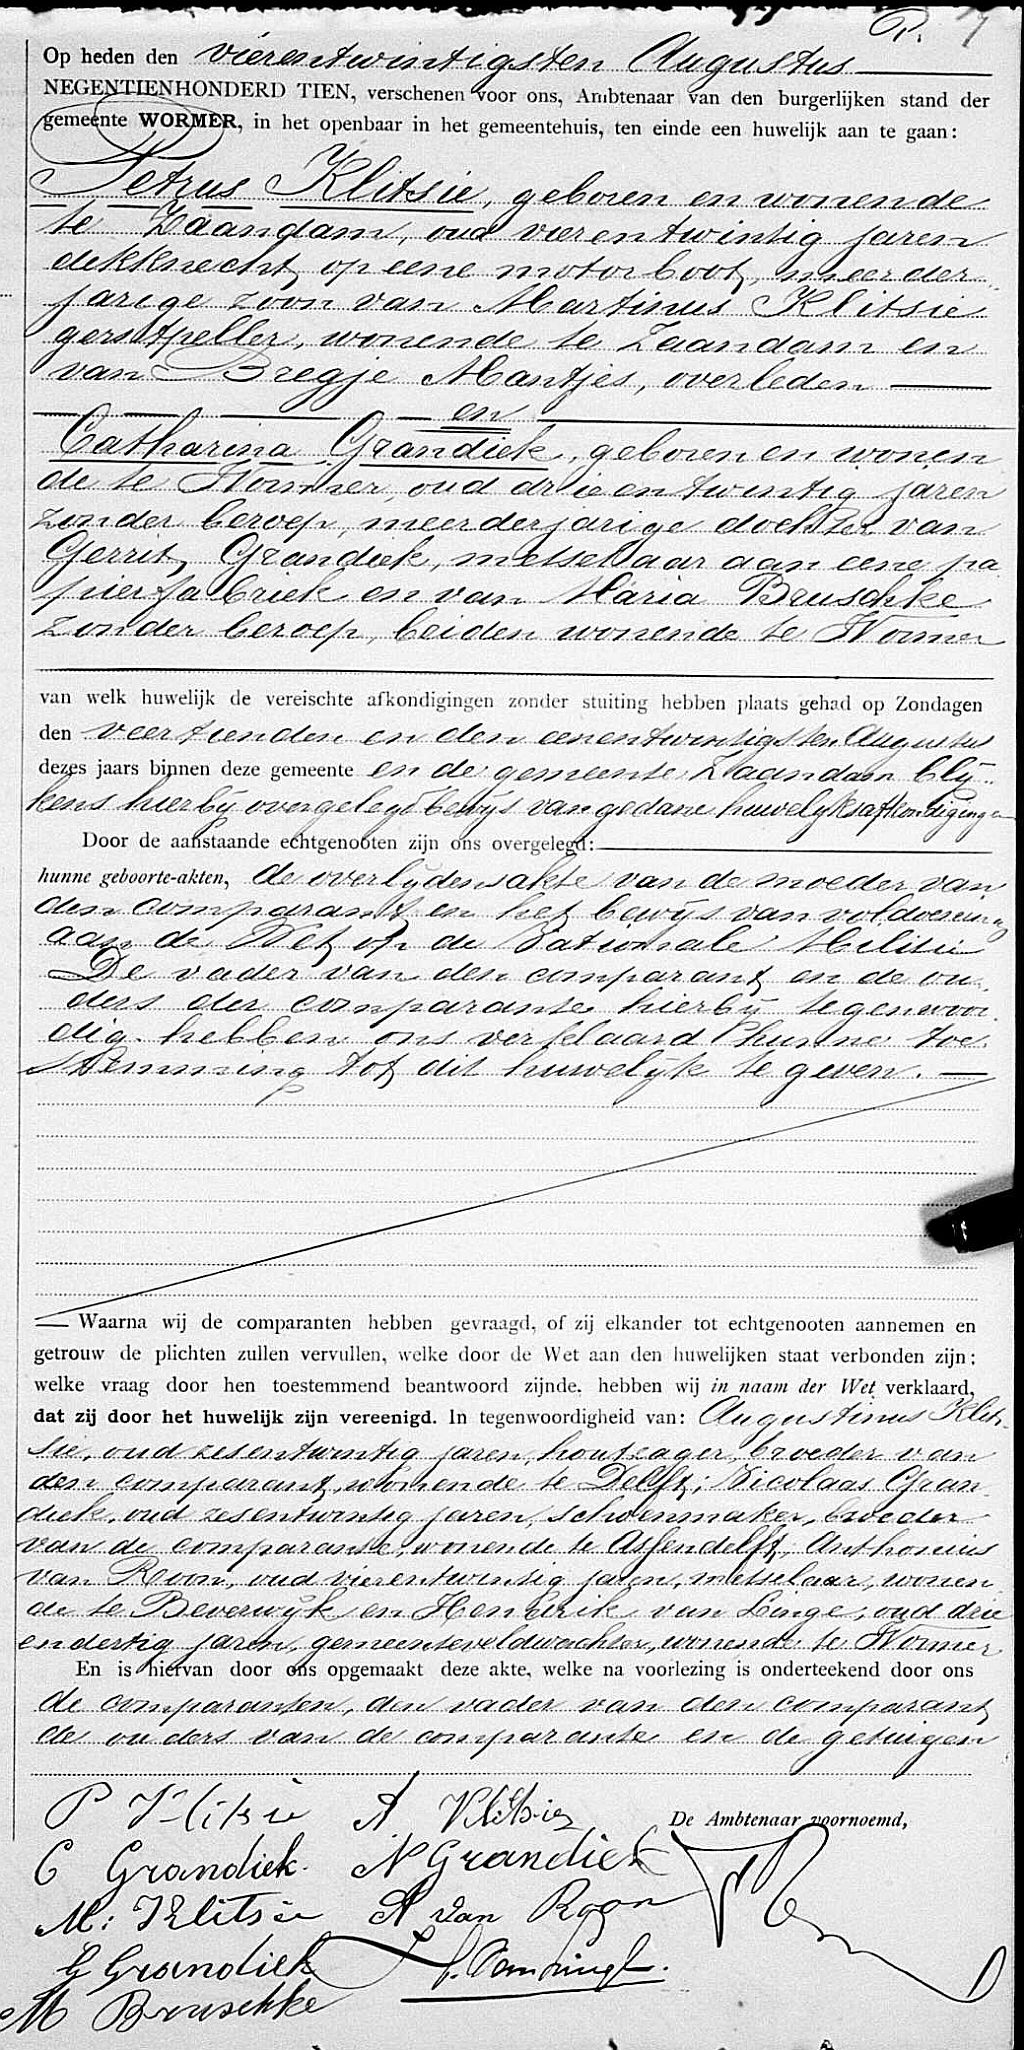 7
Op heden den vierentwintigsten Augustus
NEGENTIENHONDERD TIEN, verschenen voor ons, Ambtenaar van den burgerlijken stand der
gemeente WORMER, in het openbaar in het gemeentehuis, ten einde een huwelijk aan te gaan:
Petrus Klitsie, geboren en wonende
te Zaandam, oud vierentwintig jaren
dekknecht op eene motorboot, meerder-
jarige zoon van Martinus Klitsie
gerstpeller, wonende te Zaandam en
van Bregje Mantjes, overleden
en
Catharina Grandiek, geboren en wonen
de te Wormer, oud drieentwintig jaren
zonder beroep, meerderjarige dochter van
Gerrit Grandiek, metselaar aan eene pa
pierfabriek en van Maria Bruschke
zonder beroep, beiden wonende te Wormer
van welk huwelijk de vereischte afkondigingen zonder stuiting hebben plaats gehad op Zondagen
den veertienden en den eenentwintigsten Augustus
dezes jaars binnen deze gemeente en de gemeente Zaandam blij-
kens hierbij overgelegd bewijs van gedane huwelijksafkondigingen
Door de aanstaande echtgenooten zijn ons overgelegd:
hunne geboorte-akten, de overlijdensakte van de moeder van
den comparant en het bewijs van voldoening
aan de Wet op de Nationale Militie
De vader van den comparant en de ou-
ders der comparante hierbij tegenwoor-
dig hebben ons verklaard hunne toe-
stemming tot dit huwelijk te geven.
Waarna wij de comparanten hebben gevraagd, of zij elkander tot echtgenooten aannemen en
getrouw de plichten zullen vervullen, welke door de Wet aan den huwelijken staat verbonden zijn;
welke vraag door hen toestemmend beantwoord zijnde, hebben wij in naam der Wet verklaard,
dat zij door het huwelijk zijn vereenigd. In tegenwoordigheid van: Augustinus Klit-
sie, oud zesentwintig jaren, houtzager, broeder van
den comparant, wonende te Delft; Nicolaas Gran
diek, oud zesentwintig jaren, schoenmaker, broeder
van de comparante, wonende te Assendelft, Anthonius
van Roon, oud vierentwintig jaren, metselaar, wonen
de te Beverwijk en Hendrik van Linge, oud drie
endertig jaren, gemeenteveldwachter, wonende te Wormer
En is hiervan door ons opgemaakt deze akte, welke na voorlezing is onderteekend door ons
de comparanten, den vader van den comparant
de ouders van de comparante en de getuigen
P Klitsie A. Klitsie
De Ambtenaar voornoemd,
C Grandiek. N Grandiek
M: Klitsie A van Roon
G Grandiek
M Bruschke